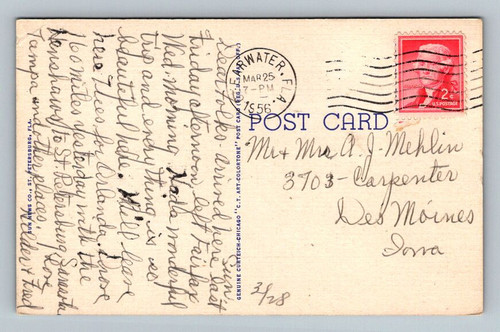 Sun.
Dear Folks - arrived here last
Friday afternoon, left Fairfax
Wed morning. Had a wonderful
trip and everything is so
beautiful here. Will leave
here Tues for Orlando. Drove
160 miles yesterday with the
Henshaws to St Petersburg, Sarasota
Tampa and other places. Love
& Fred
SUN NEWS CO., ST. PETERSBURG, FLA.
GENUINE CURTEICH-CHICAGO "C.T. ART-COLORTONE" POST CARD
CLEARWATER, FLA.
MAR 25
7-PM
1956
2¢
U.S. POSTAGE
POST CARD
Mr & Mrs A. J. Mehlin
3703 - Carpenter
Des Moines
Iowa